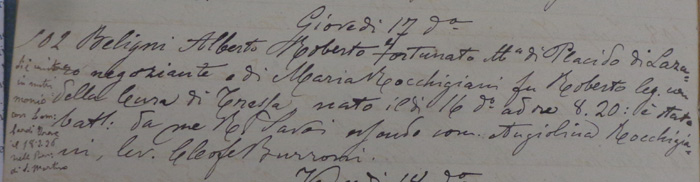 Giovedì 17 do
102 Beligni Alberto Roberto Fortunato Mo di Placido di Lazza=
ro negoziante e di Maria Rocchigiani fu Roberto leg. con.
della Cura di Tressa, nato il dì 16 do ad ore 8. 20: è stato
batt: da me Ro essendo com. Angiolina Rocchigia=
ni, lev. Cleofe Burroni.
Si unì
in matri
monio
con
il 18.2.26
nella
di S. Martino
Venerdì 18 do